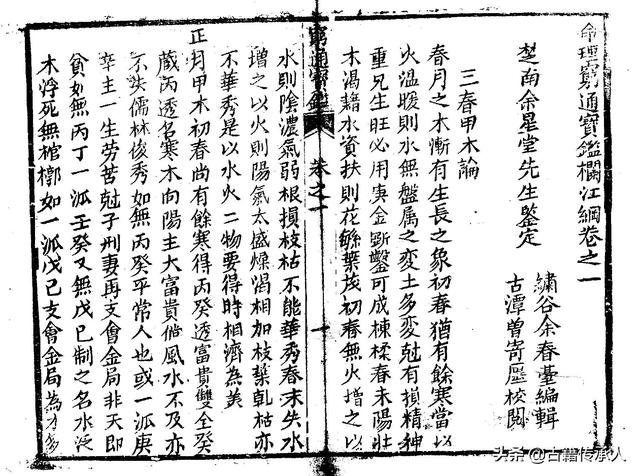 命理窮通寶鑑欄江綱卷之一
楚南余星堂先生鑒定
繡谷余春臺編輯
古潭曾寄壓校閱
三春甲木論
春月之木漸有生長之象初春猶有餘寒當以
火溫暖則水無盤屈之変土多変尅有損精神
重兄生旺必用庚金斵鑿可成棟樑春末陽壯
木渴藉水資扶則花繁葉茂初春無火增之以
水則陰濃氣弱根損枝枯不能華秀春末失水
增之以火則陽氣太盛燥渴相加枝葉乹枯亦
不華秀是以水火二物要得時相濟為美
正月甲木初春尚有餘寒得丙癸透富貴雙全癸
藏丙透名寒木向陽主大富貴倘風水不及亦
不失儒林俊秀如無丙癸平常人也或一派庚
辛主一生劳苦尅子刑妻再支會金局非夭即
貧如無丙丁一派壬癸又無戊己制之名水泛
木浮死無棺槨如一派戊己支會金局為才多
窮通寶鑑 卷之一 一
头条 @古籍传承人